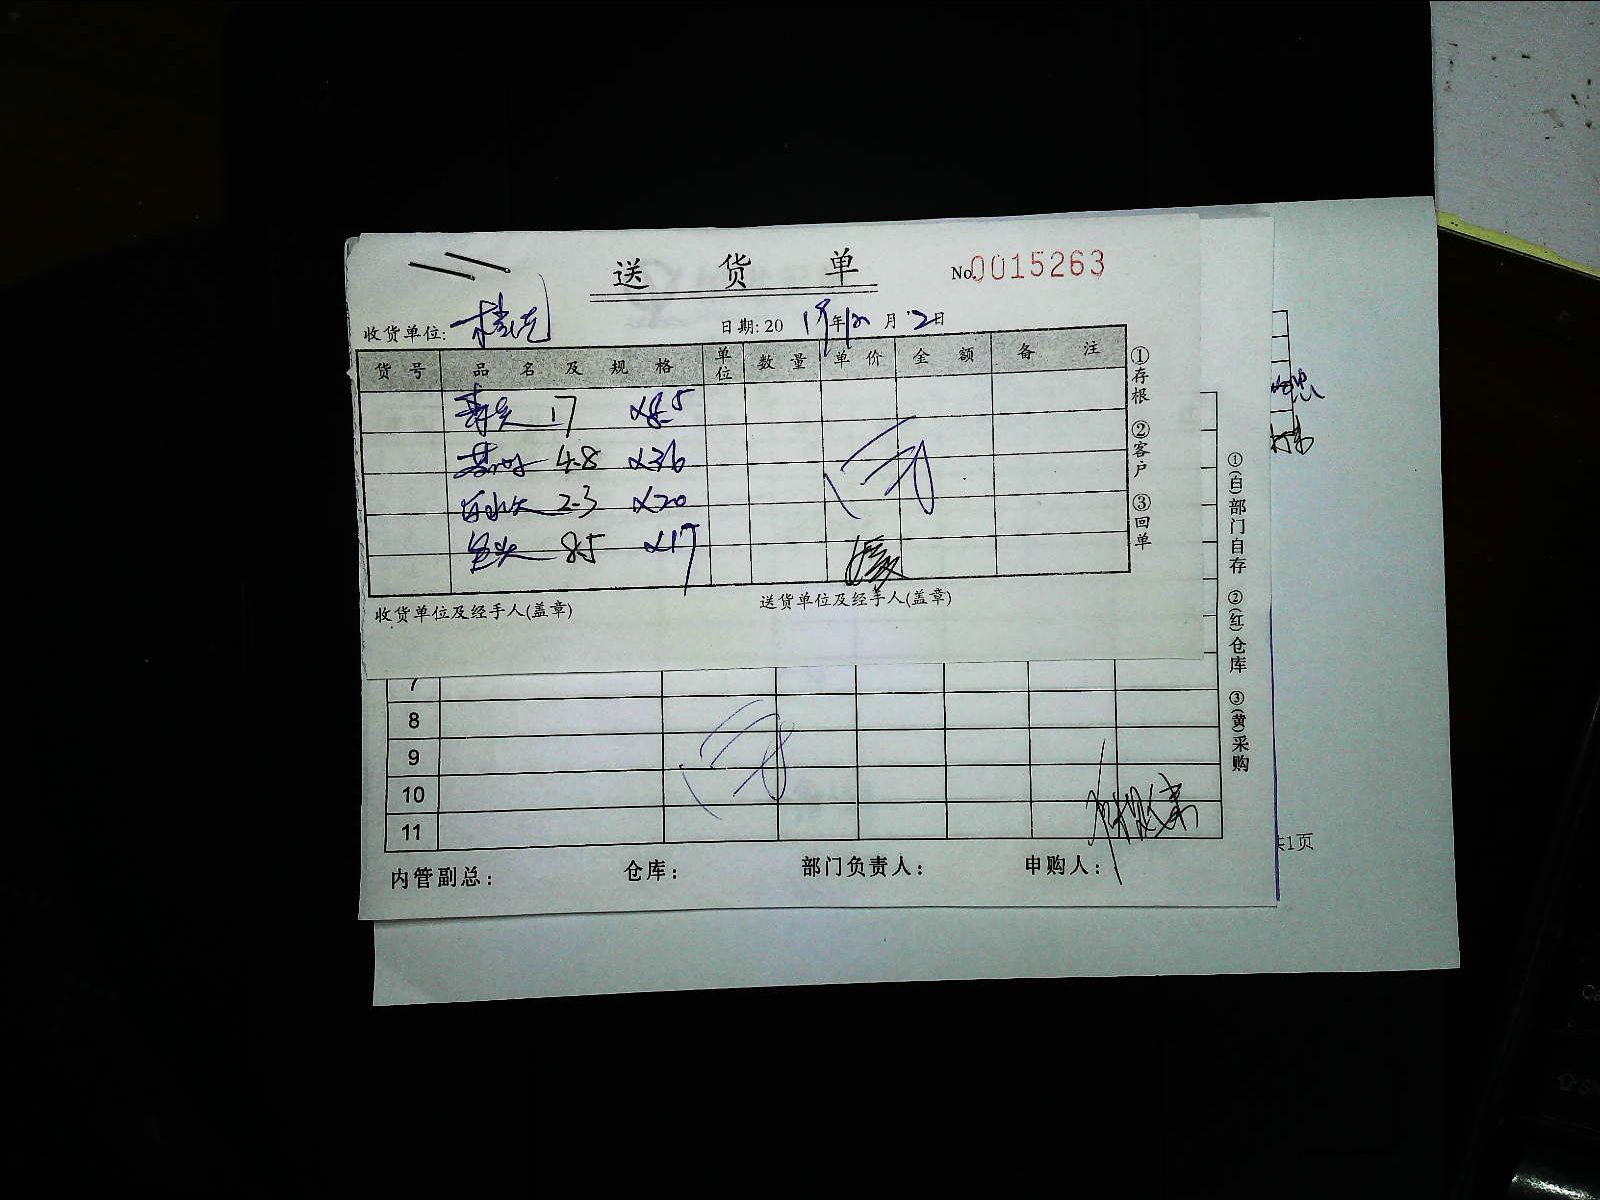 送货单
No.0015263
收货单位:
日期:2019年12月2日
货号 品名及规格 单位 数量 单价 金额 备注
17 x8.5
4.8 x36
2.3 x20
包头 8.5 x17
收货单位及经手人(盖章) 送货单位及经手人(盖章)
①存根 ②客户 ③回单
7
8
9
10
11
内管副总: 仓库: 部门负责人: 申购人:
①(白)部门自存 ②(红)仓库 ③(黄)采购
共1页